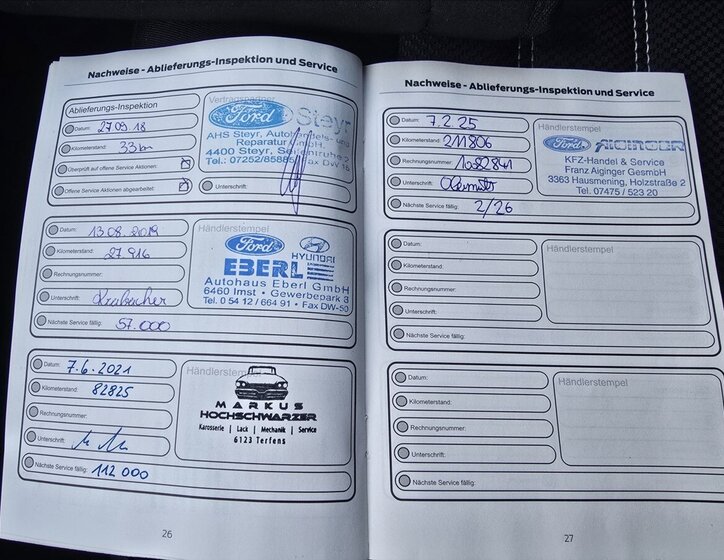 Nachweise - Ablieferungs-Inspektion und Service
Ablieferungs-Inspektion
Datum: 27 09. 18
Kilometerstand: 33 km
Überprüft auf offene Service Aktionen:
Offene Service Aktionen abgearbeitet:
Vertragspartner
Ford Steyr
AHS Steyr, Autohandels- und
Reparatur GmbH.
4400 Steyr, Seitenstr. 2
Tel.: 07252/85885 Fax DW 18
Unterschrift:
Datum: 13 08. 2019
Kilometerstand: 27.916
Rechnungsnummer:
Unterschrift:
Nächste Service fällig: 57.000
Händlerstempel
Ford HYUNDAI
EBERL
Autohaus Eberl GmbH
6460 Imst • Gewerbepark 3
Tel. 0 54 12 / 664 91 • Fax DW-50
Datum: 7.6.2021
Kilometerstand: 82825
Rechnungsnummer:
Unterschrift:
Nächste Service fällig: 112 000
Händlerstempel
MARKUS
HOCHSCHWARZER
Karosserie | Lack | Mechanik | Service
6123 Terfens
26
Nachweise - Ablieferungs-Inspektion und Service
Datum: 7.2.25
Kilometerstand: 211806
Rechnungsnummer: 1092841
Unterschrift:
Nächste Service fällig: 2/26
Händlerstempel
Ford AIGINGER
KFZ-Handel & Service
Franz Aiginger GesmbH
3363 Hausmening, Holzstraße 2
Tel. 07475 / 523 20
Datum:
Kilometerstand:
Rechnungsnummer:
Unterschrift:
Nächste Service fällig:
Händlerstempel
Datum:
Kilometerstand:
Rechnungsnummer:
Unterschrift:
Nächste Service fällig:
Händlerstempel
27